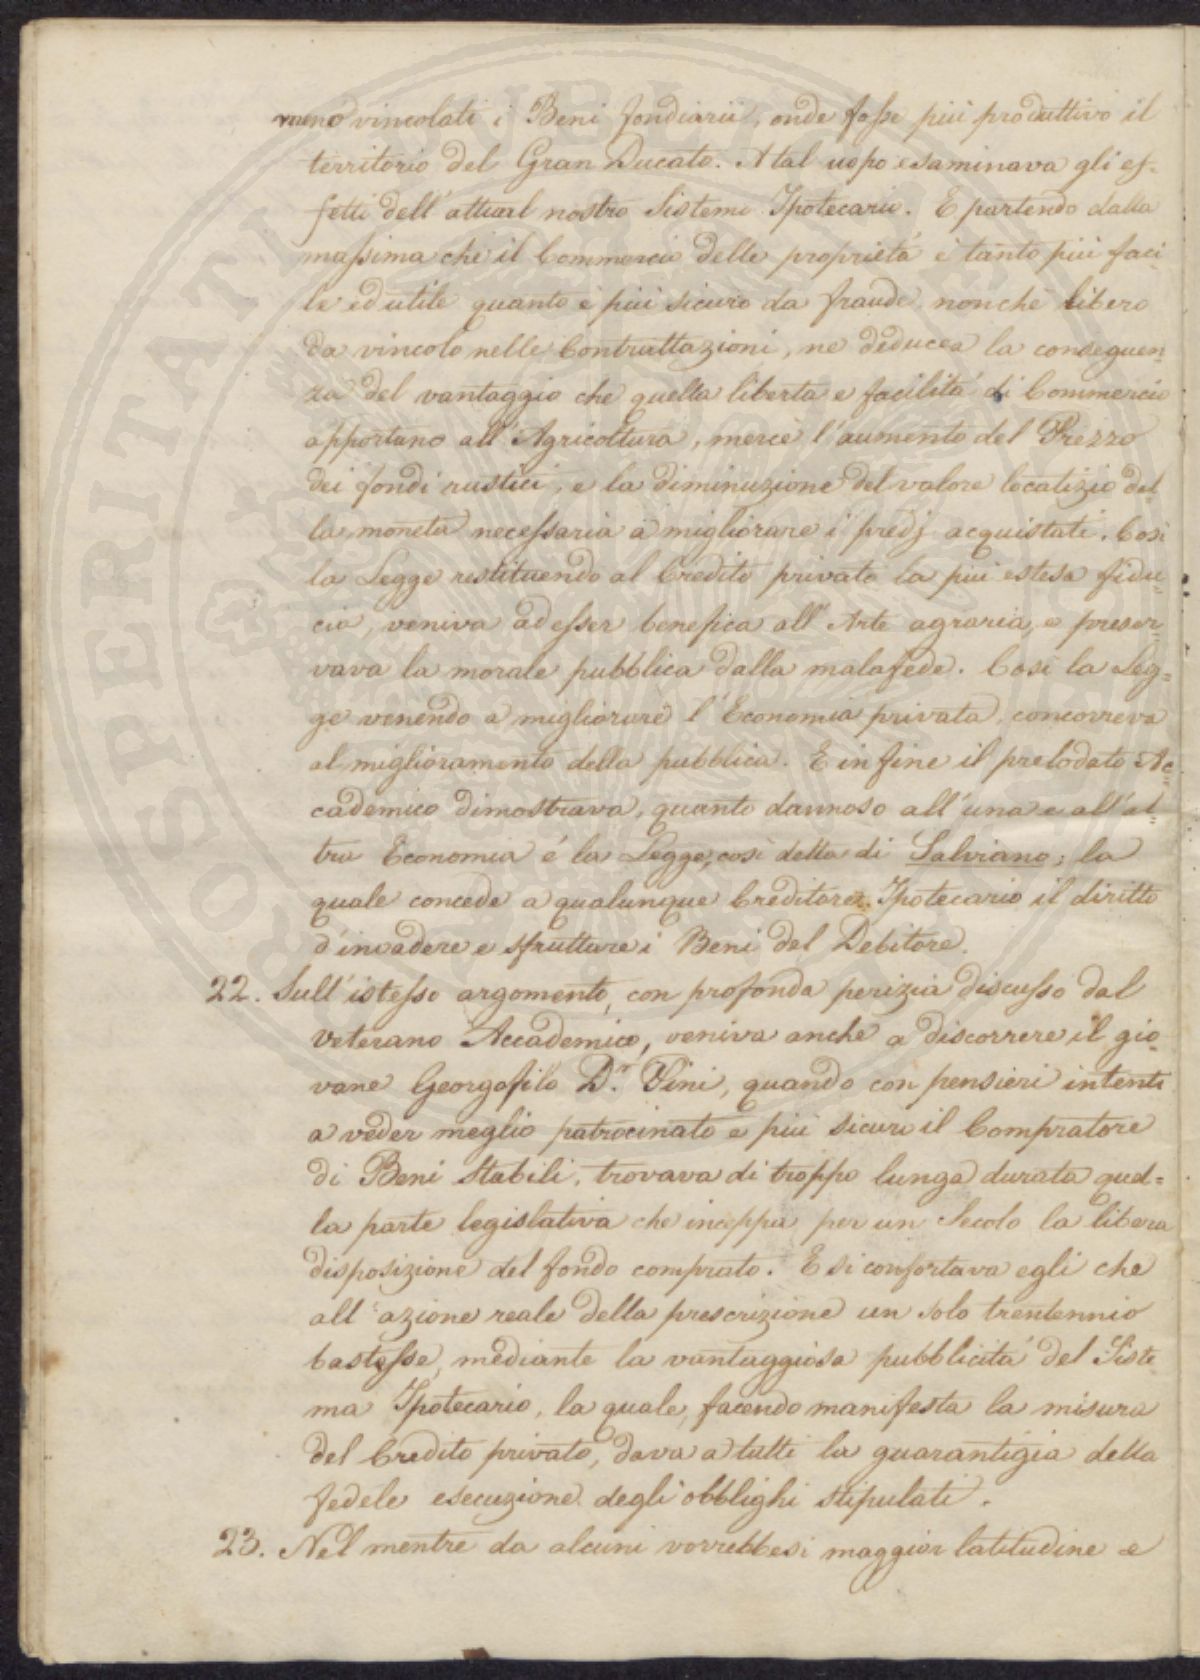 meno vincolati i Beni fondiarii, onde fosse più produttivo il
territorio del Gran Ducato. A tal uopo esaminava gli ef-
fetti dell'attual nostro Sistema Ipotecario. E partendo dalla
massima che il Commercio delle proprietà è tanto più faci-
le ed utile quanto è più sicuro da fraude nonchè libero
da vincolo nelle Contrattazioni, ne deducea la conseguen-
za del vantaggio che quella libertà e facilità di Commercio
apportano all'Agricoltura, mercè l'aumento del Prezzo
dei fondi rustici, e la diminuzione del valore locatizio del-
la moneta necessaria a migliorare i predj acquistati. Così
la Legge restituendo al Credito privato la più estesa fidu-
cia, veniva ad esser benefica all'Arte agraria, e preser-
vava la morale pubblica dalla malafede. Così la Leg=
ge venendo a migliorare l'Economia privata, concorreva
al miglioramento della pubblica. E infine il prelodato Ac=
cademico dimostrava, quanto dannoso all'una e all'al-
tra Economia é la Legge, così detta di Salviano; la
quale concede a qualunque Creditore Ipotecario il diritto
d'invadere e sfruttare i Beni del Debitore.
22. Sull'istesso argomento, con profonda perizia discusso dal
veterano Accademico, veniva anche a discorrere il gio-
vane Georgofilo D.r Fini, quando con pensieri intenti
a veder meglio patrocinato e più sicuro il Compratore
di Beni Stabili, trovava di troppo lunga durata quel=
la parte legislativa che inceppa per un Secolo la libera
disposizione del fondo comprato. E si confortava egli che
all'azione reale della prescrizione un solo trentennio
bastasse, mediante la vantaggiosa pubblicità del Siste
ma Ipotecario, la quale, facendo manifesta la misura
del Credito privato, dava a tutti la guarantigia della
fedele esecuzione degli obblighi stipulati.
23. Nel mentre da alcuni vorrebbesi maggior latitudine e
PROSPERITATI PUBLICAE